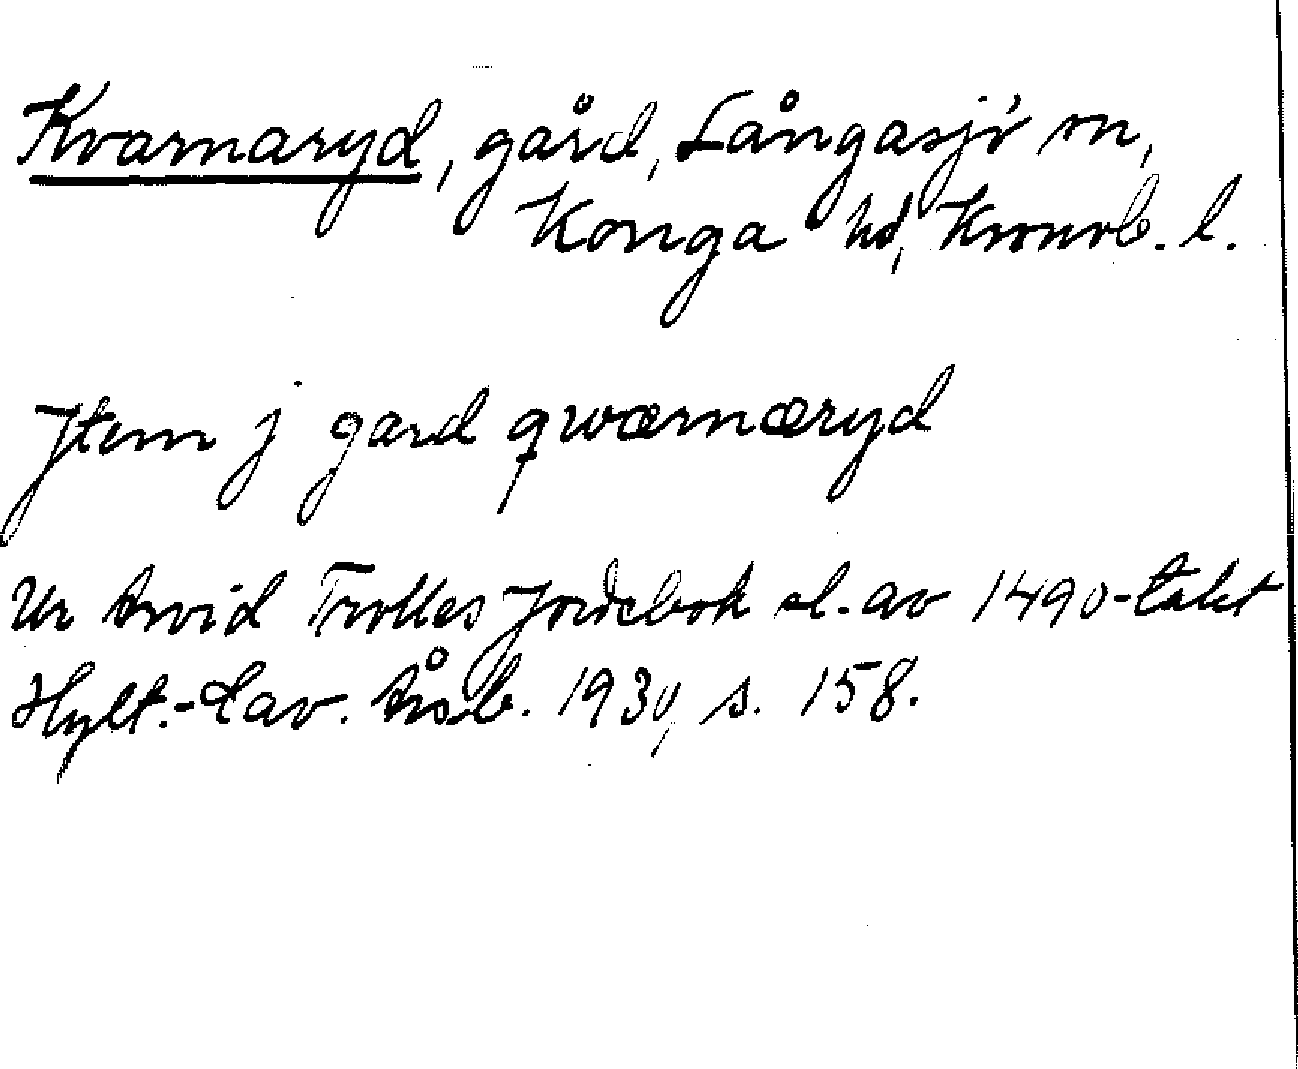 Kvarnaryd, gård, Långasjö sn,
Konga hd, Kronob. l.
Jtem j gard qwærnæryd
Ur Arvid Trolles Jordebok sl. av 1490-talet
Hylt.-Cav. Årsb. 1930, s. 158.